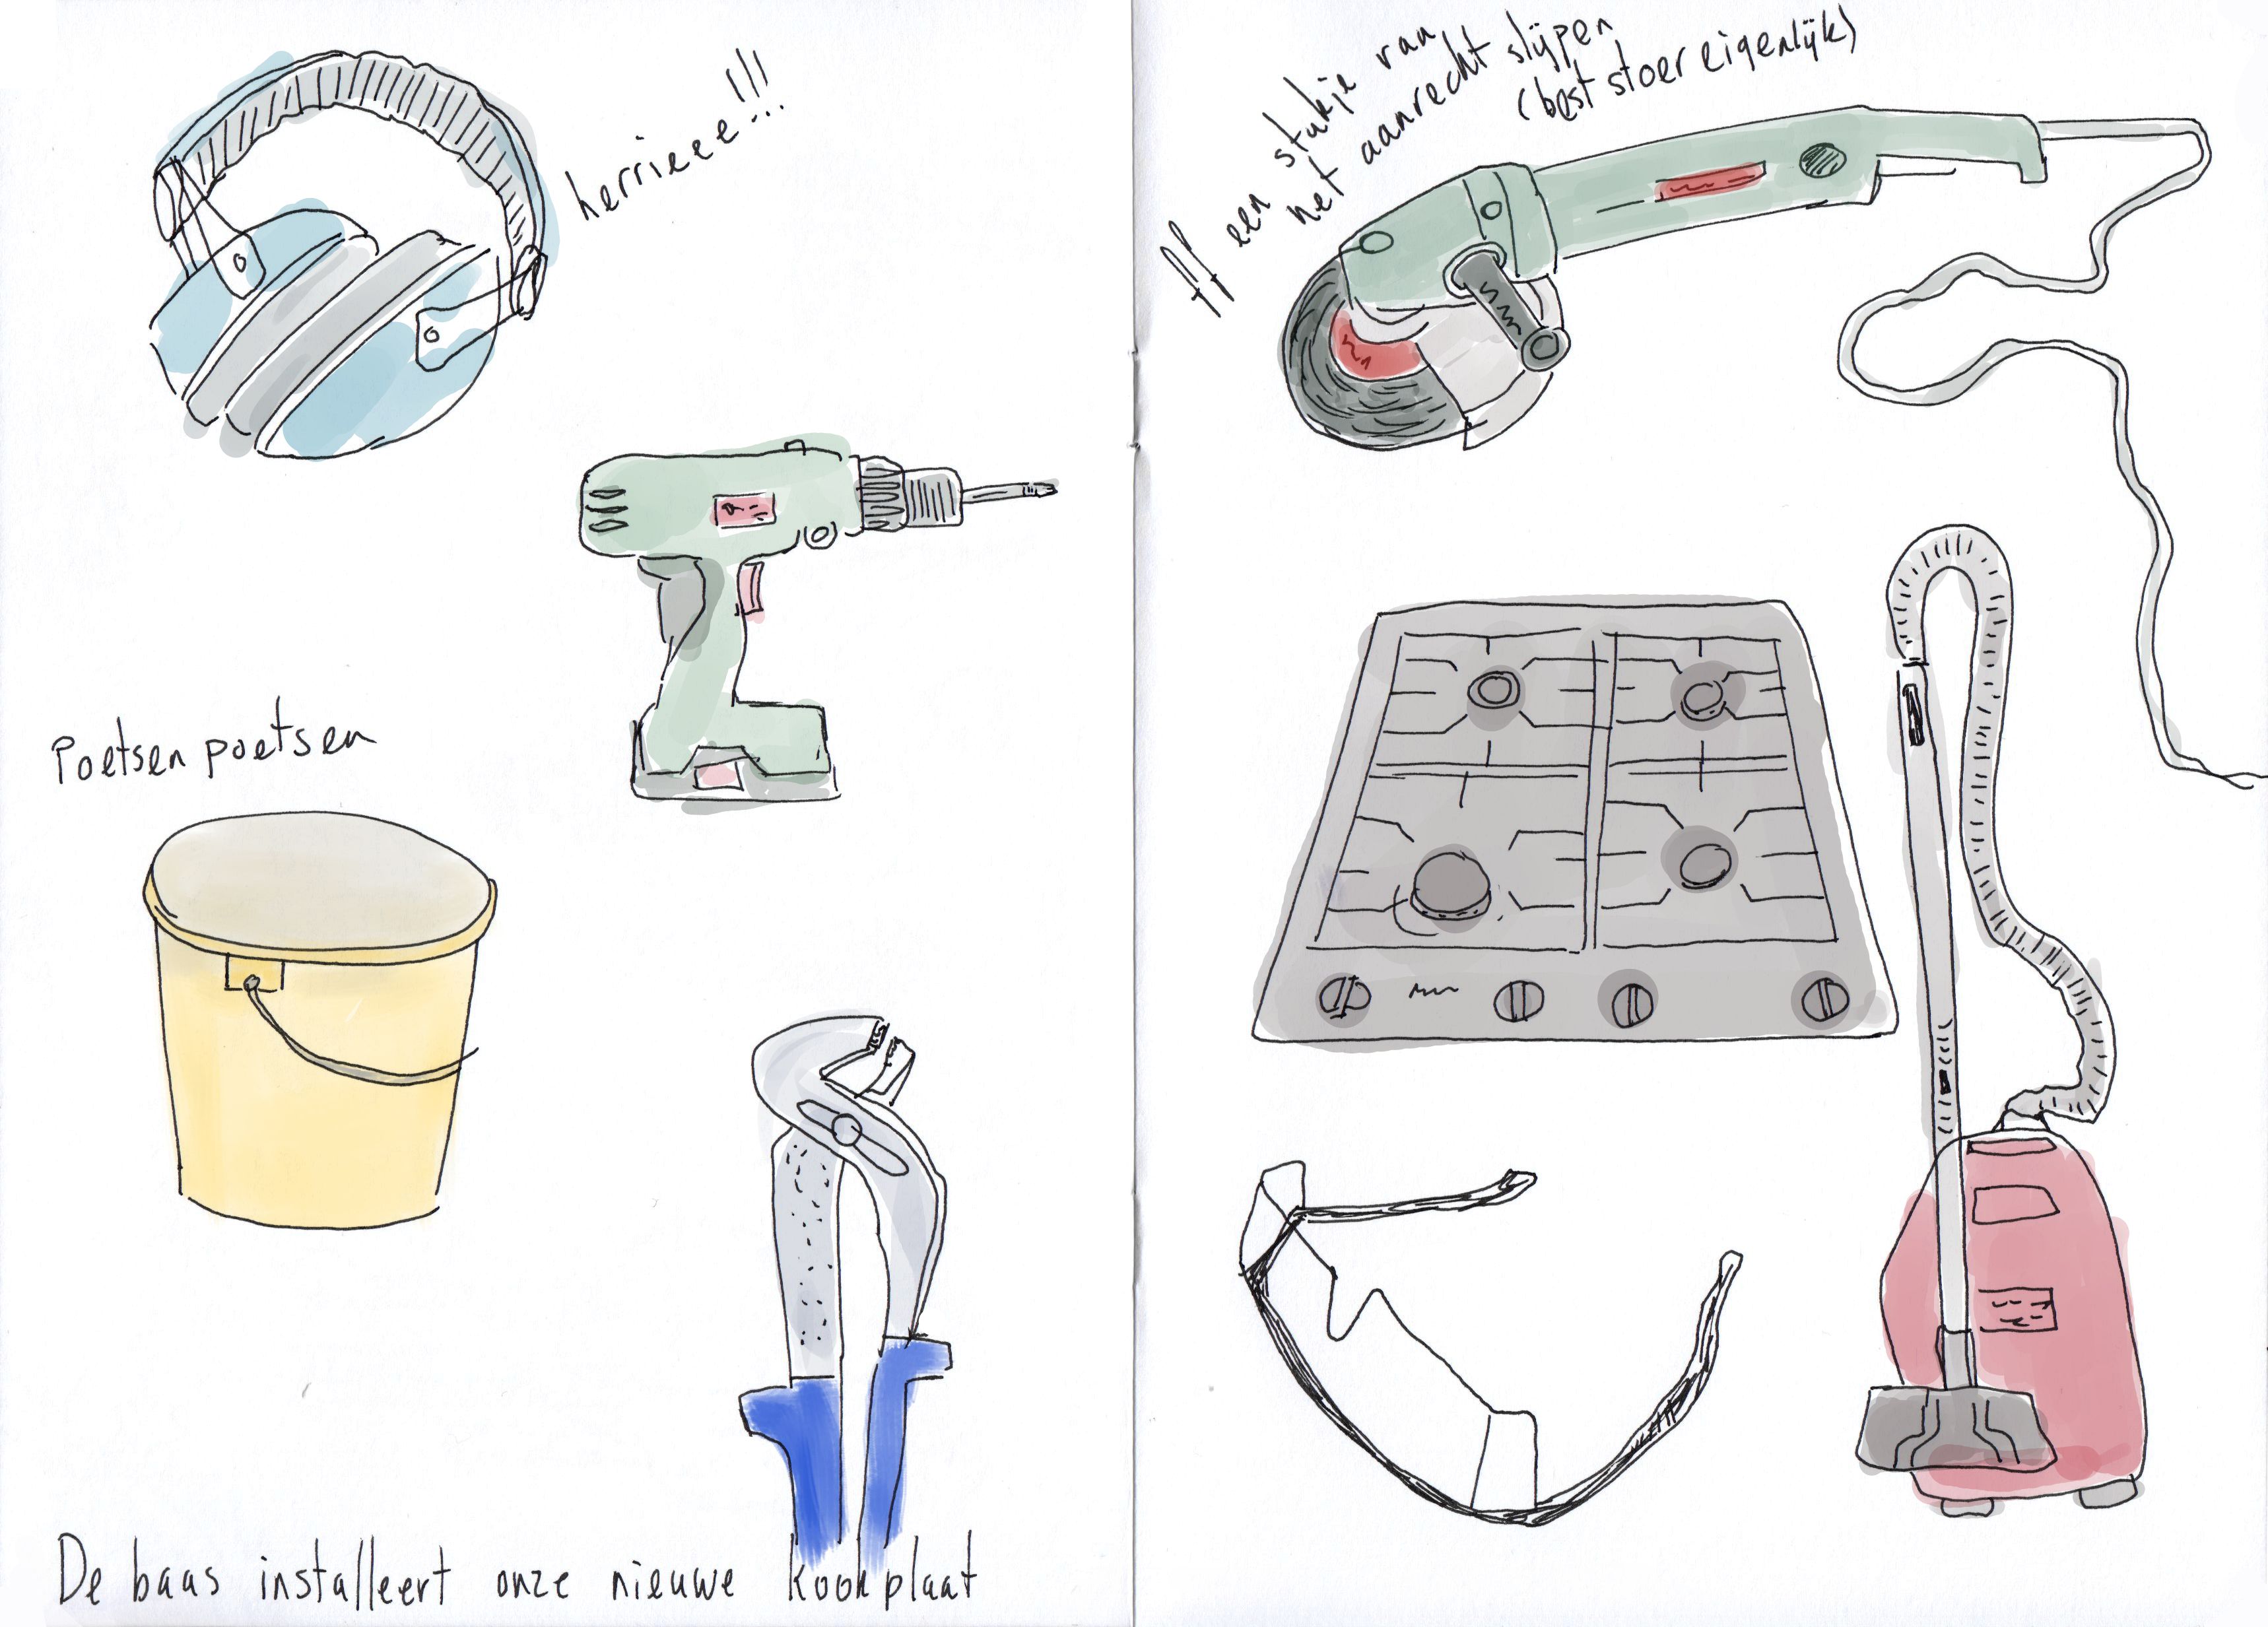 herrieee!!!
Poetsen poetsen
De baas installeert onze nieuwe kookplaat
ff een stukje van
het aanrecht slijpen
(best stoer eigenlijk)